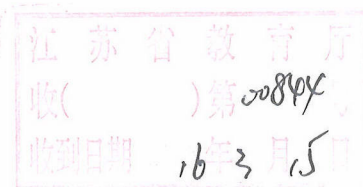 江苏省教育厅
收( )第00844号
收到日期 16年3月15日